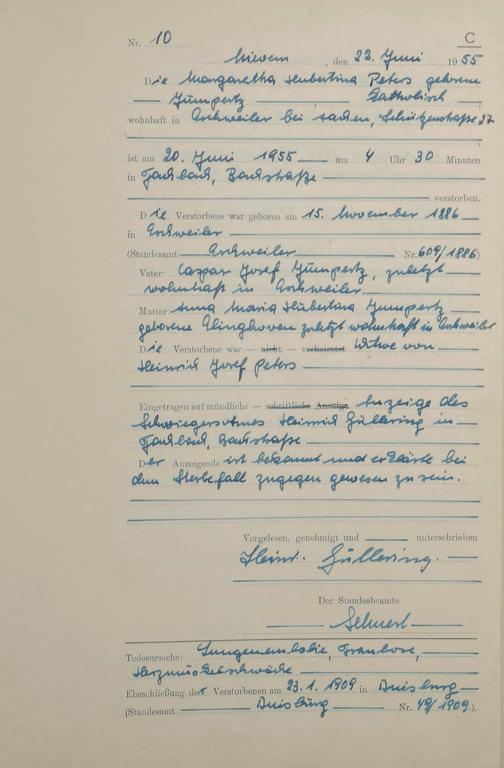 Nr. 10 C
Nievern, den 22. Juni 1955
Die Margaretha Hubertina Peters geborene
Jümpertz Katholisch
wohnhaft in Eschweiler bei Aachen, Schützenstraße 37
ist am 20. Juni 1955 um 4 Uhr 30 Minuten
in Fachbach, Bachstraße
verstorben.
Die Verstorbene war geboren am 15. November 1886
in Eschweiler
(Standesamt Eschweiler Nr. 609/1886)
Vater: Caspar Josef Jümpertz, zuletzt
wohnhaft in Eschweiler
Mutter Anna Maria Hubertina Jümpertz
geborene Elinghoven zuletzt wohnhaft in Eschweiler
Die Verstorbene war — nicht — verheiratet Witwe von
Heinrich Josef Peters
Eingetragen auf mündliche — schriftliche Anzeige Anzeige des
Schwiegersohnes Heinrich Güllering in
Fachbach, Bachstraße
Der Anzeigende ist bekannt und erklärte bei
dem Sterbefall zugegen gewesen zu sein.
Vorgelesen, genehmigt und unterschrieben
Heinr. Gülléring.
Der Standesbeamte
Todesursache: Lungenembolie, Trombose,
Herzmuskelschwäche
Eheschließung der Verstorbenen am 23.1.1909 in Duisburg
(Standesamt Duisburg Nr. 49/1909.)